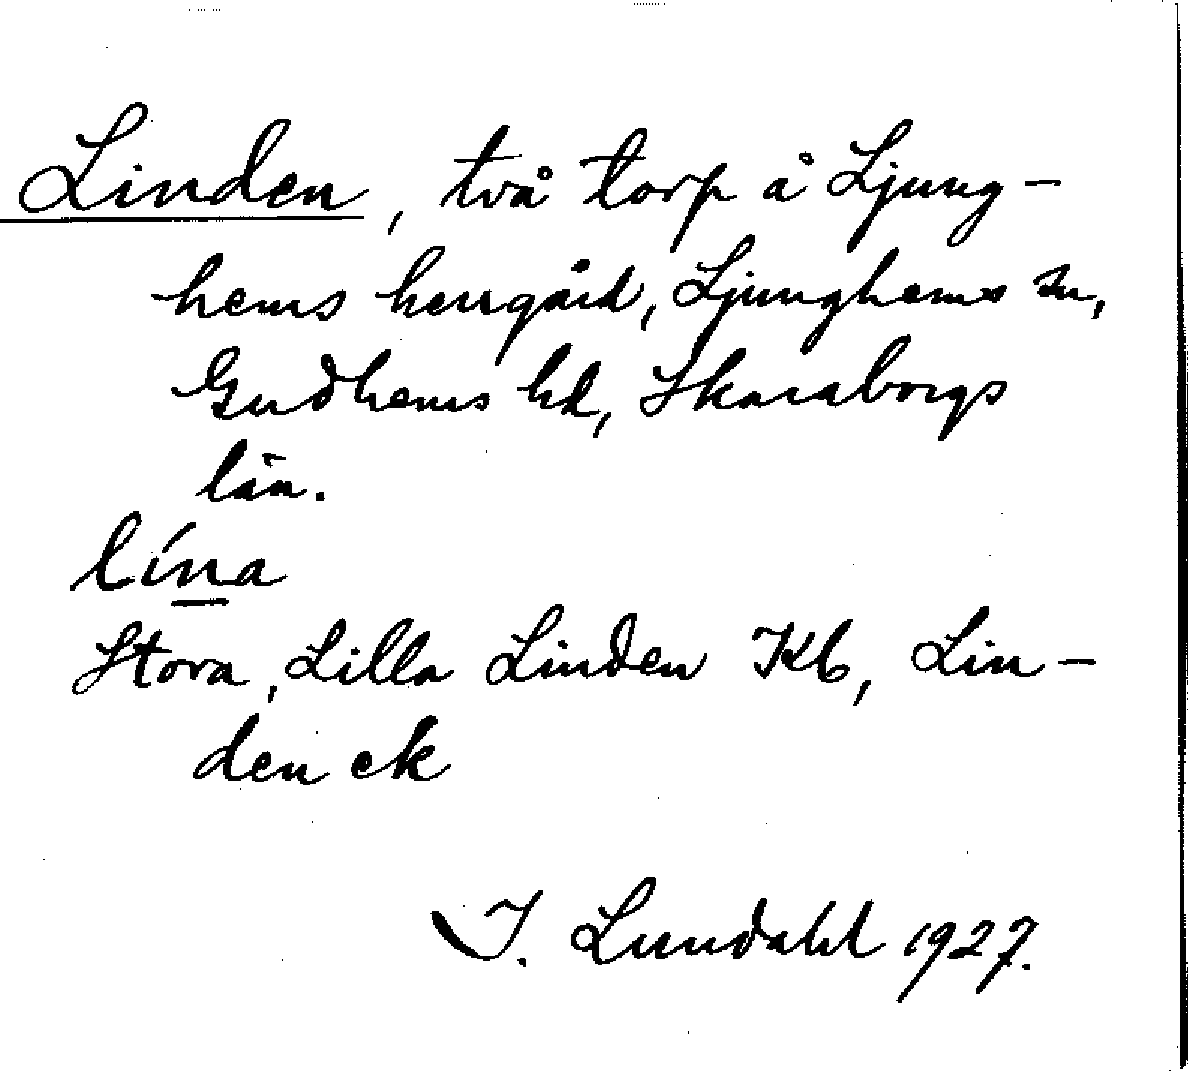 Linden, två torp å Ljung-
hems herrgård, Ljunghems sn,
Gudhems hd, Skaraborgs
län.
lína
Stora, Lilla Linden Kb, Lin-
den ek
I. Lundahl 1927.